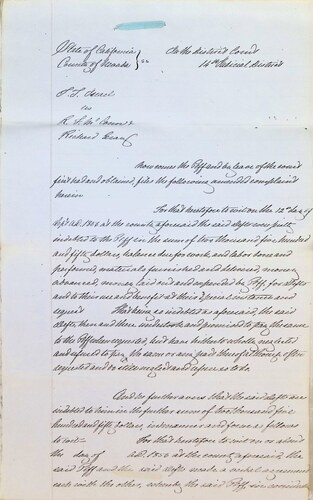 State of California } ss In the District Court
County of Nevada 14th Judicial District
vs
Richard
Now comes the Plff and by leave of the court
first had and obtained, files the following amended complaint
herein
For that heretofore to wit on the 12th day of
A.D. 1858 at the county aforesaid the said defts were justly
indebted to the Plff in the sum of two thousand five hundred
and fifty dollars, balance due for work and labor done and
performed, materials furnished and delivered, money
advanced, money laid out and expended by Plff, for defts
and to their use and benefit at their special instance and
request That being so indebted as aforesaid, the said
defts then and there undertook and promised to pay the same
to the Plff when requested, but have hitherto wholly neglected
and refused to pay the same or any part thereof though often
requested and to still neglect and refuse so to do.
And for further avers that the said defts are
indebted to him in the further sum of two thousand five
hundred and fifty dollars, in manner and form as follows
to wit: For that heretofore to wit on or about
the day of A.D. 1856 at the county aforesaid, the
said Plff and the said defts made a verbal agreement
each with the other, whereby the said Plff